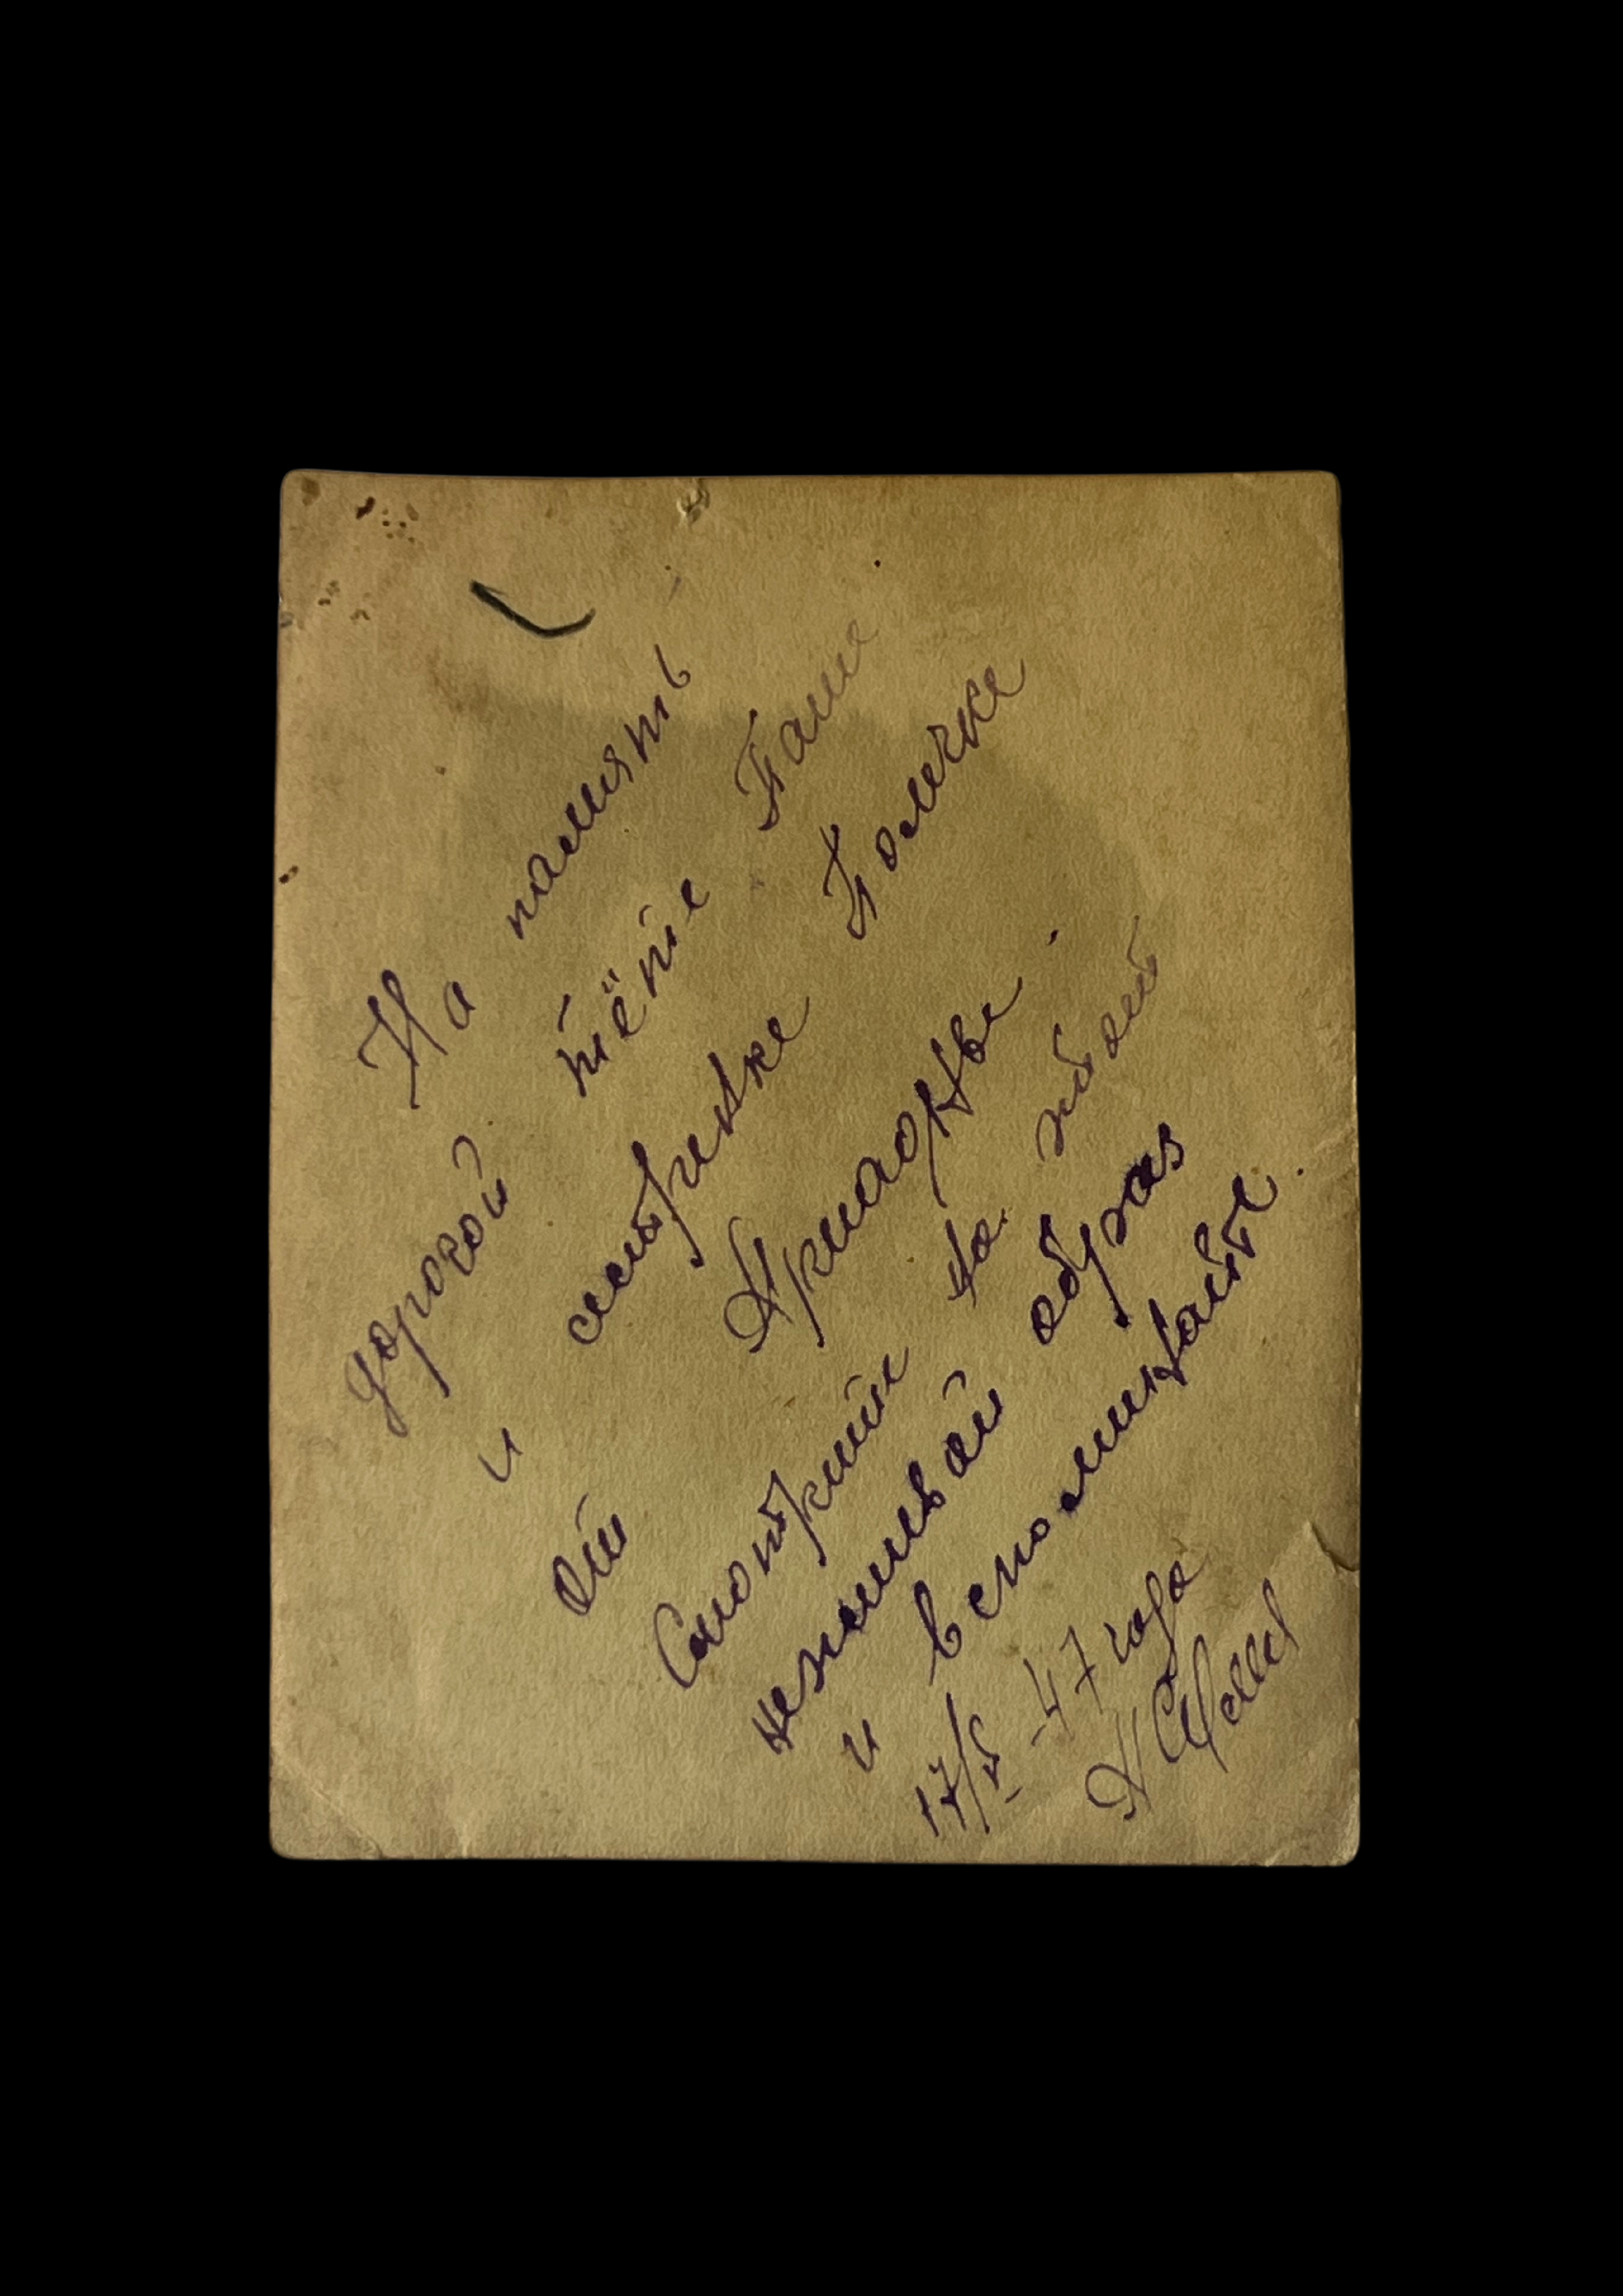 На память
дорогой тёте Паше
и сестричке Полечке
от Ариадны.
Смотрите на этот
неживой образ
и вспоминайте.
17/V -47 года